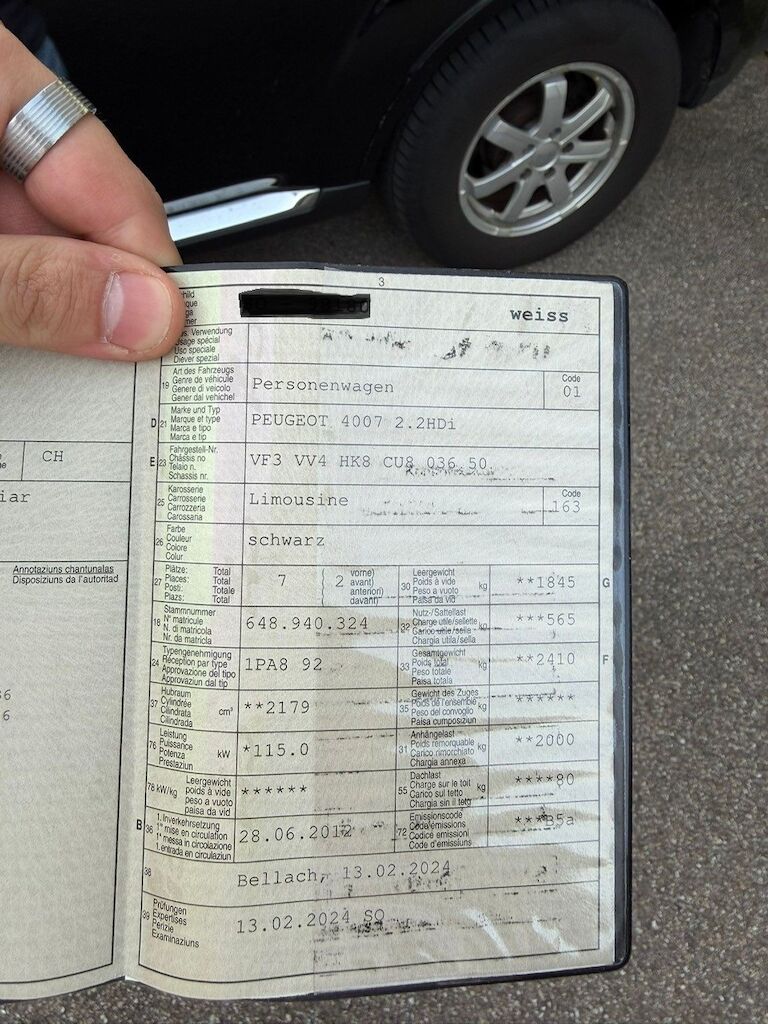 3
weiss
Verwendung
Usage spécial
Uso speciale
Diever spezial
19
Art des Fahrzeugs
Genre de véhicule
Genere di veicolo
Gener dal vehichel
Personenwagen
Code
01
D 21
Marke und Typ
Marque et type
Marca e tipo
Marca e tip
PEUGEOT 4007 2.2HDi
E 23
Fahrgestell-Nr.
Châssis no
Telaio n.
Schassis nr.
VF3 VV4 HK8 CU8 036 50
25
Karosserie
Carrosserie
Carrozzeria
Carossaria
Limousine
Code
163
26
Farbe
Couleur
Colore
Colur
schwarz
27
Plätze: Total
Places: Total
Posti: Totale
Plazs: Total
7
( 2
vorne)
avant)
anteriori)
davant)
30
Leergewicht
Poids à vide
Peso a vuoto
Paisa da vid
kg
**1845
G
18
Stammnummer
N° matricule
N. di matricola
Nr. da matricla
648.940.324
32
Nutz-/Sattellast
Charge utile/sellette
Carico utile/sella
Chargia utila/sella
kg
***565
24
Typengenehmigung
Réception par type
Approvazione del tipo
Approvaziun dal tip
1PA8 92
33
Gesamtgewicht
Poids total
Peso totale
Paisa totala
kg
**2410
F
37
Hubraum
Cylindrée
Cilindrata
Cilindrada
cm³
**2179
35
Gewicht des Zuges
Poids de l'ensemble
Peso del convoglio
Paisa cumposiziun
kg
******
76
Leistung
Puissance
Potenza
Prestaziun
kW
*115.0
31
Anhängelast
Poids remorquable
Carico rimorchiato
Chargia annexa
kg
**2000
78 kW/kg
Leergewicht
poids à vide
peso a vuoto
paisa da vid
******
55
Dachlast
Charge sur le toit
Carico sul tetto
Chargia sin il tetg
kg
****80
B 36
1. Inverkehrsetzung
1re mise en circulation
1a messa in circolazione
1. entrada en circulaziun
28.06.2012
72
Emissionscode
Code émissions
Codice emissioni
Code d'emissiuns
***B5a
38
Bellach, 13.02.2024
39
Prüfungen
Expertises
Perizie
Examinaziuns
13.02.2024 SO
CH
iar
Annotaziuns chantunalas
Disposiziuns da l'autoritad
36
6